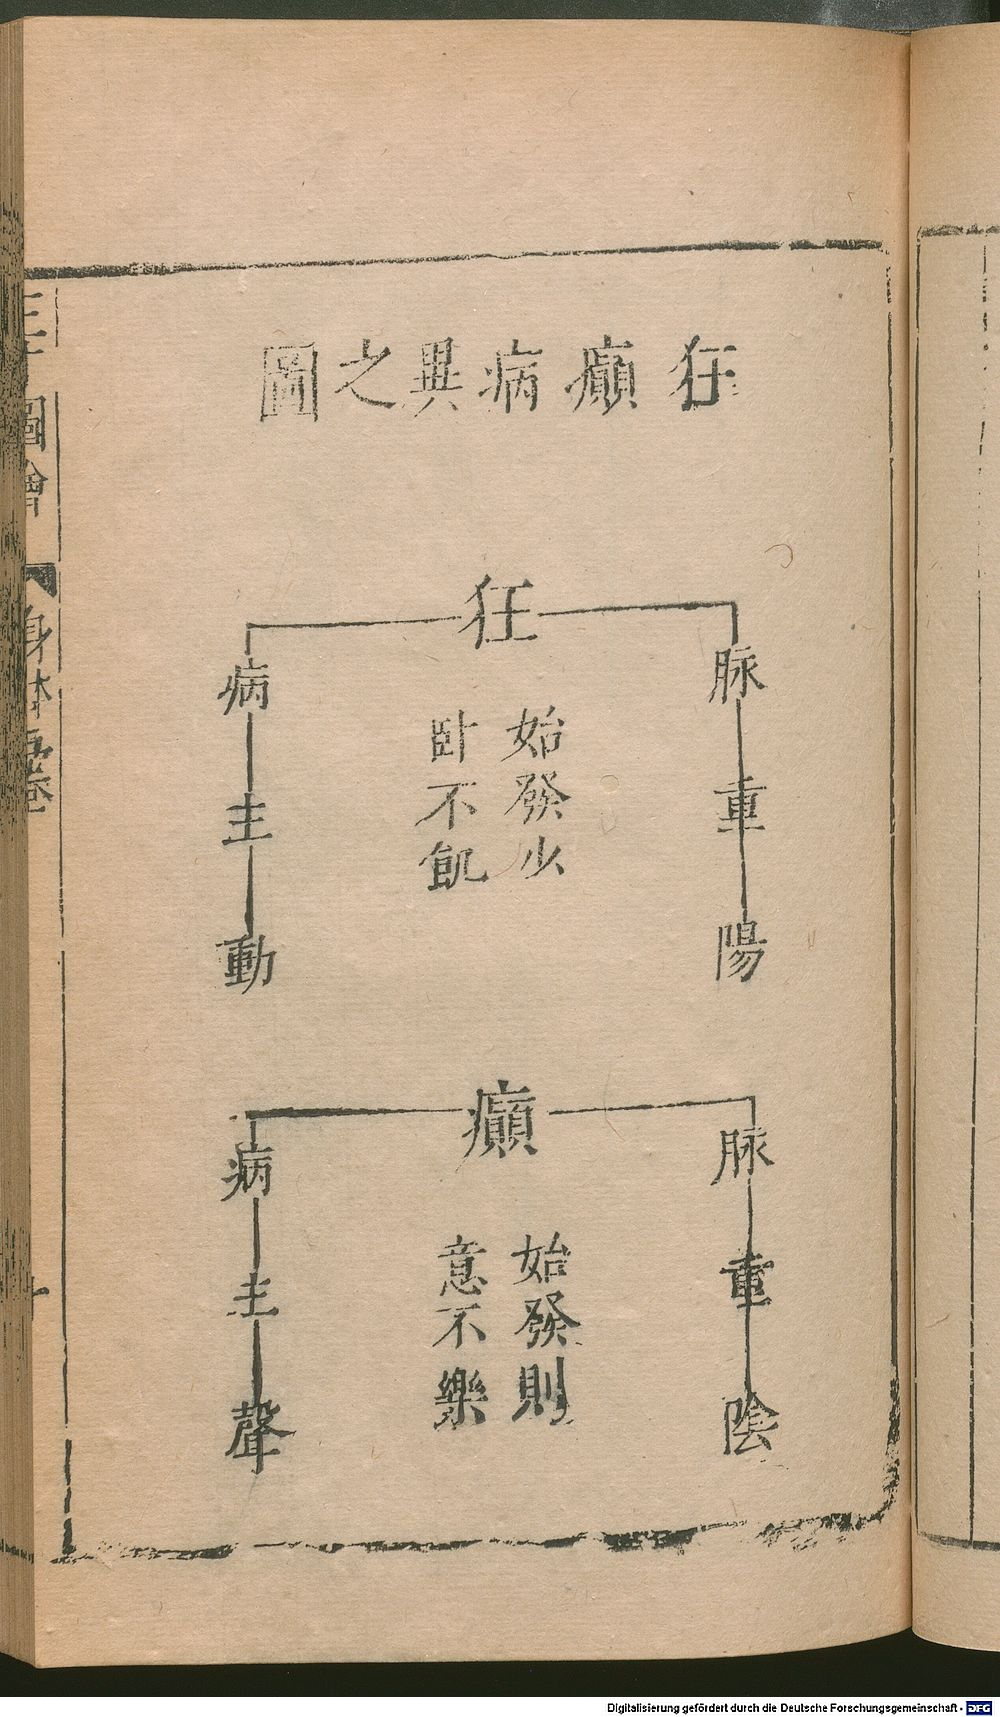 狂癲病異之圖
狂
脉重陽
始發少
卧不飢
病主動
癲
脉重陰
始發則
意不樂
病主聲
圖會
身體
卷
Digitalisierung gefördert durch die Deutsche Forschungsgemeinschaft - DFG